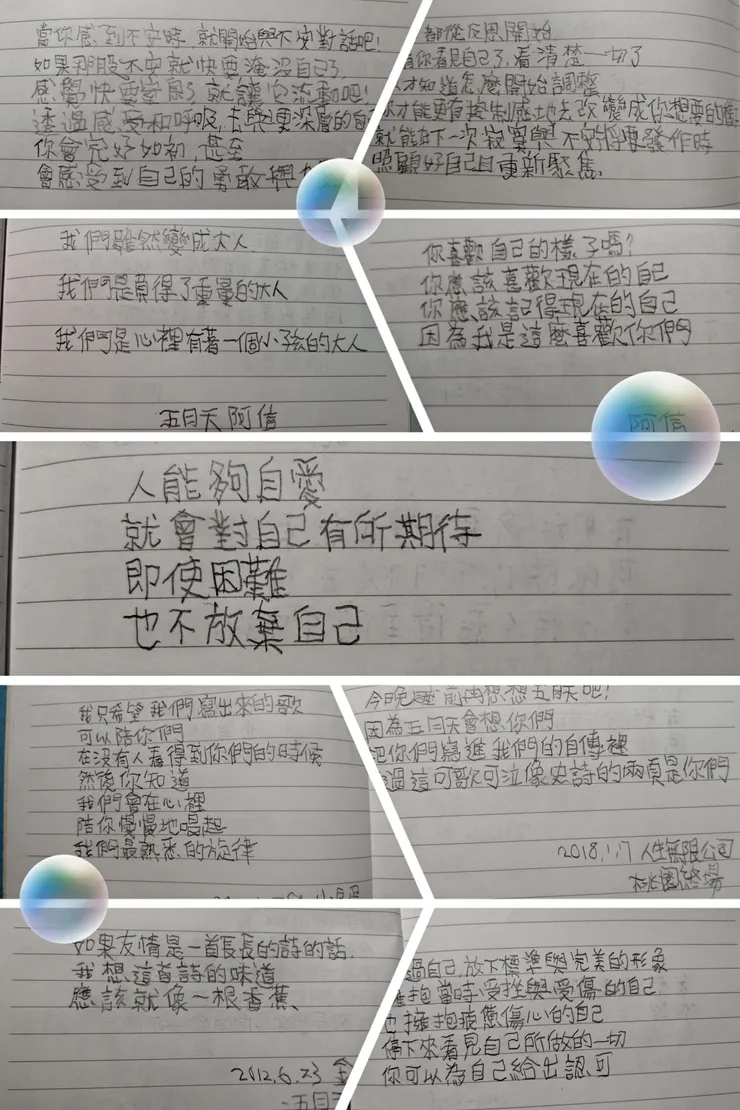 當你感到不安時,就開始與不安對話吧!
如果那股不安就快要淹沒自己了,
感覺快要窒息了就讓它流動吧!
透過感受和呼吸,去與更深層的自
你會完好如初,甚至
會感受到自己的勇敢與
都從反思開始
有你看見自己了,看清楚一切了
才知道怎麼開始調整
你才能更有控制感地去改變成你想要的樣
就能在下一次寂寞與不安將要發作時
照顧好自己且重新聚焦.
我們雖然變成大人
我們是負得了重量的大人
我們是心裡有著一個小孩的大人
五月天 阿信
你喜歡自己的樣子嗎?
你應該喜歡現在的自己
你應該記得現在的自己
因為我是這麼喜歡你們
阿信
人能夠自愛
就會對自己有所期待
即使困難
也不放棄自己
我只希望我們寫出來的歌
可以陪你們
在沒有人看得到你們的時候
然後你知道
我們會在心裡
陪你慢慢地唱起
我們最熟悉的旋律
今晚睡前再想想五月天吧!
因為五月天會想你們
把你們寫進我們的自傳裡
過這可歌可泣像史詩的兩頁是你們
2018.1.7 人生無限公司
桃園終場
如果友情是一首長長的詩的話,
我想,這首詩的味道
應該就像一根香蕉、
2012.6.23
-五月天
過自己,放下標準與完美的形象
擁抱當時受挫與受傷的自己
也擁抱疲憊傷心的自己
停下來看見自己所做的一切
你可以為自己給出認可